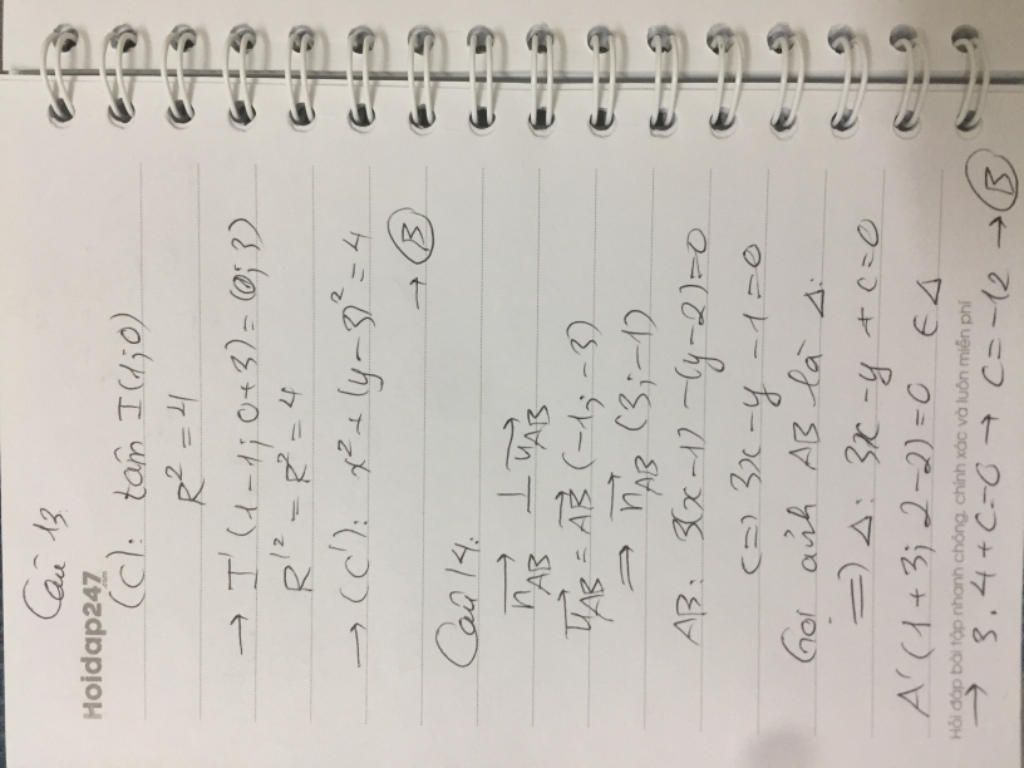 Câu 13.
Hoidap247.com
(C): tâm I(1;0)
R² = 4
→ I'(1-1; 0+3) = (0; 3)
R'² = R² = 4
→ (C'): x² + (y-3)² = 4
→ B
Câu 14:
n⃗AB ⊥ u⃗AB
u⃗AB = A⃗B (-1; -3)
⇒ n⃗AB (3; -1)
AB: 3(x-1) - (y-2) = 0
<=> 3x - y - 1 = 0
Gọi ảnh AB là Δ:
=> Δ: 3x - y + c = 0
A' (1+3; 2-2) = 0 ∈ Δ
Hỏi đáp bài tập nhanh chóng, chính xác và luôn miễn phí
→ 3.4 + c = 0 → c = -12 → B